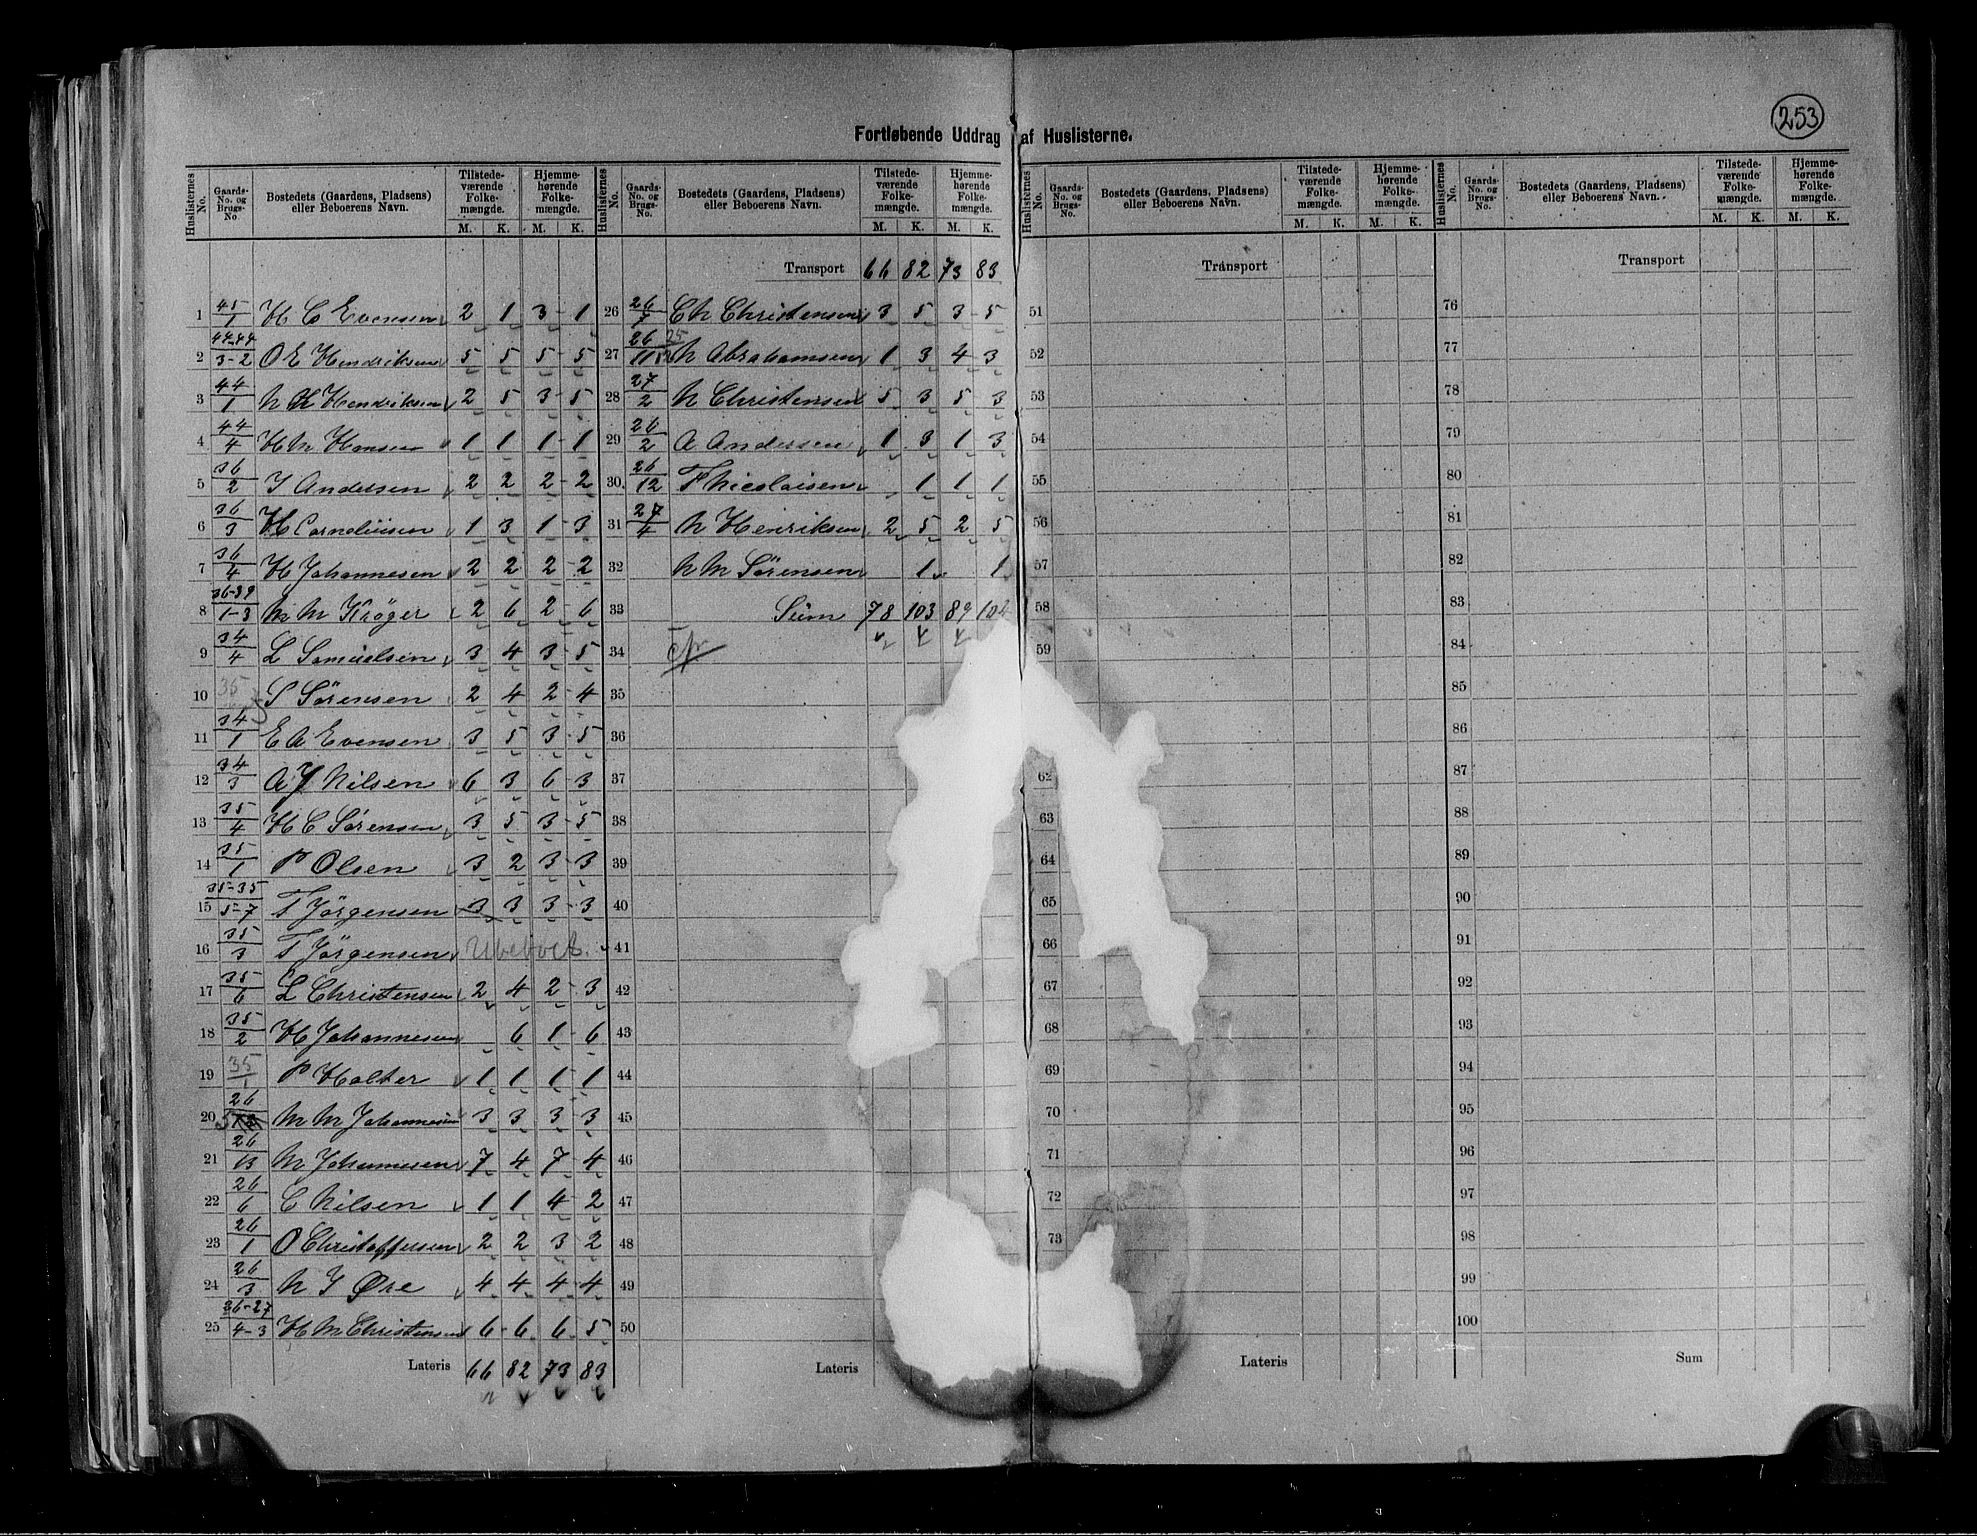 253
Fortløbende Uddrag af Huslisterne.
Huslisternes No. | Gaards-No. og Brugs-No | Bostedets (Gaardens, Pladsens) eller Beboerens Navn. | Tilstedeværende Folkemængde. M. K. | Hjemmehørende Folkemængde. M. K.
1 45/1 H C Evensen 2 1 3 1
2 44-44/3-2 O E Hendriksen 5 5 5 5
3 44/1 N H Hendriksen 2 5 3 5
4 44/4 H N Hansen 1 1 1 1
5 36/2 J Andersen 2 2 2 2
6 36/3 H Corneliusen 1 3 1 3
7 36/4 H Johannesen 2 2 2 2
8 36-39/1-3 M M Krøger 2 6 2 6
9 34/4 L Samuelsen 3 4 3 5
10 35 S Sörensen 2 4 2 4
11 34/1 E A Evensen 3 5 3 5
12 34/3 A J Nilsen 6 3 6 3
13 35/4 H C Sørensen 3 5 3 5
14 35/1 P Olsen 3 2 3 3
15 35-35/5-7 T Jørgensen 3 3 3 3
16 35/3 T Jörgensen Ubeboet.
17 35/6 L Christensen 2 4 2 3
18 35/2 H Johannesen 6 1 6
19 35/1 P Holter 1 1 1 1
20 26 M M Johannesen 3 3 3 3
21 26/13 M Johannesen 7 4 7 4
22 26/6 C Nilsen 1 1 4 2
23 26/1 O Christoffersen 2 2 3 2
24 26/3 N J Øre 4 4 4 4
25 26-27/4-3 H M Christensen 6 6 6 5
Lateris 66 82 73 83
Huslisternes No. | Gaards-No. og Brugs-No. | Bostedets (Gaardens, Pladsens) eller Beboerens Navn. | Tilstedeværende Folkemængde. M. K. | Hjemmehørende Folkemængde. M. K.
Transport 66 82 73 83
26 26/7 Ch Christensen 3 5 3 5
27 26 25/11 N Abrahamsen 1 3 4 3
28 27/2 N Christensen 5 3 5 3
29 26/2 A Andersen 1 3 1 3
30 26/12 F Nicolaisen 1 1 1
31 27/4 N Henriksen 2 5 2 5
32 N M Sørensen 1 1
33 Sum 78 103 89 104
34 cfr
35
36
37
38
39
40
41
42
43
44
45
46
47
48
49
50
Lateris
Huslisternes No. | Gaards-No. og Brugs-No. | Bostedets (Gaardens, Pladsens) eller Beboerens Navn. | Tilstedeværende Folkemængde. M. K. | Hjemmehørende Folkemængde. M. K.
Transport
51
52
53
54
55
56
57
58
59
62
63
64
65
66
67
68
69
70
71
72
73
Lateris
Huslisternes No. | Gaards-No. og Brugs-No. | Bostedets (Gaardens, Pladsens) eller Beboerens Navn. | Tilstedeværende Folkemængde. M. K. | Hjemmehørende Folkemængde. M. K.
Transport
76
77
78
79
80
81
82
83
84
85
86
87
88
89
90
91
92
93
94
95
96
97
98
99
100
Sum